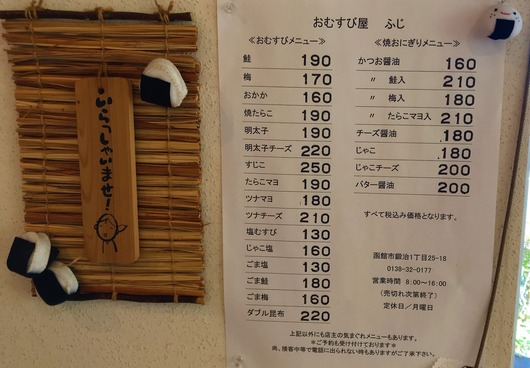 いらっしゃいませ!
おむすび屋 ふじ
≪おむすびメニュー≫
鮭 190
梅 170
おかか 160
焼たらこ 190
明太子 190
明太子チーズ 220
すじこ 250
たらこマヨ 190
ツナマヨ 180
ツナチーズ 210
塩むすび 130
じゃこ塩 160
ごま塩 130
ごま鮭 180
ごま梅 160
ダブル昆布 220
≪焼おにぎりメニュー≫
かつお醤油 160
〃 鮭入 210
〃 梅入 180
〃 たらこマヨ入 210
チーズ醤油 180
じゃこ 180
じゃこチーズ 200
バター醤油 200
すべて税込み価格となります。
函館市鍛治1丁目25-18
0138-32-0177
営業時間 8:00~16:00
(売切れ次第終了)
定休日/月曜日
上記以外にも店主の気まぐれメニューもあります。
*ご予約も受け付けております*
尚、接客中等で電話に出られない時もありますがご了承下さい。